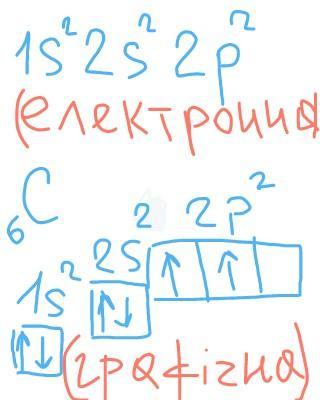 1s² 2s² 2p²
(електронна)
₆C
1s² 2s² 2p²
(графічна)